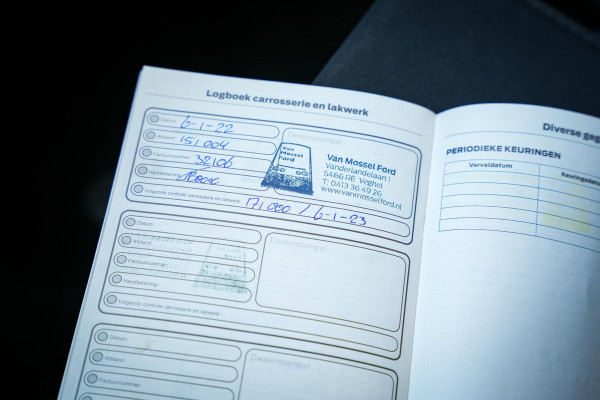 Logboek carrosserie en lakwerk
Datum: 6-1-22
Afstand: 151.004
Factuurnummer: 32106
Dealerstempel
Van Mossel Ford
Van Mossel Ford
Vanderlandelaan 1
5466 RE Veghel
T: 0413 36 49 26
www.vanmosselford.nl
Volgende controle carrosserie en lakwerk: 171.000 / 6-1-23
Datum:
Afstand:
Factuurnummer:
Handtekening:
Volgende controle carrosserie en lakwerk:
Dealerstempel
Datum:
Afstand:
Factuurnummer:
Dealerstempel
Diverse geg
PERIODIEKE KEURINGEN
Vervaldatum
Keuringsdatu